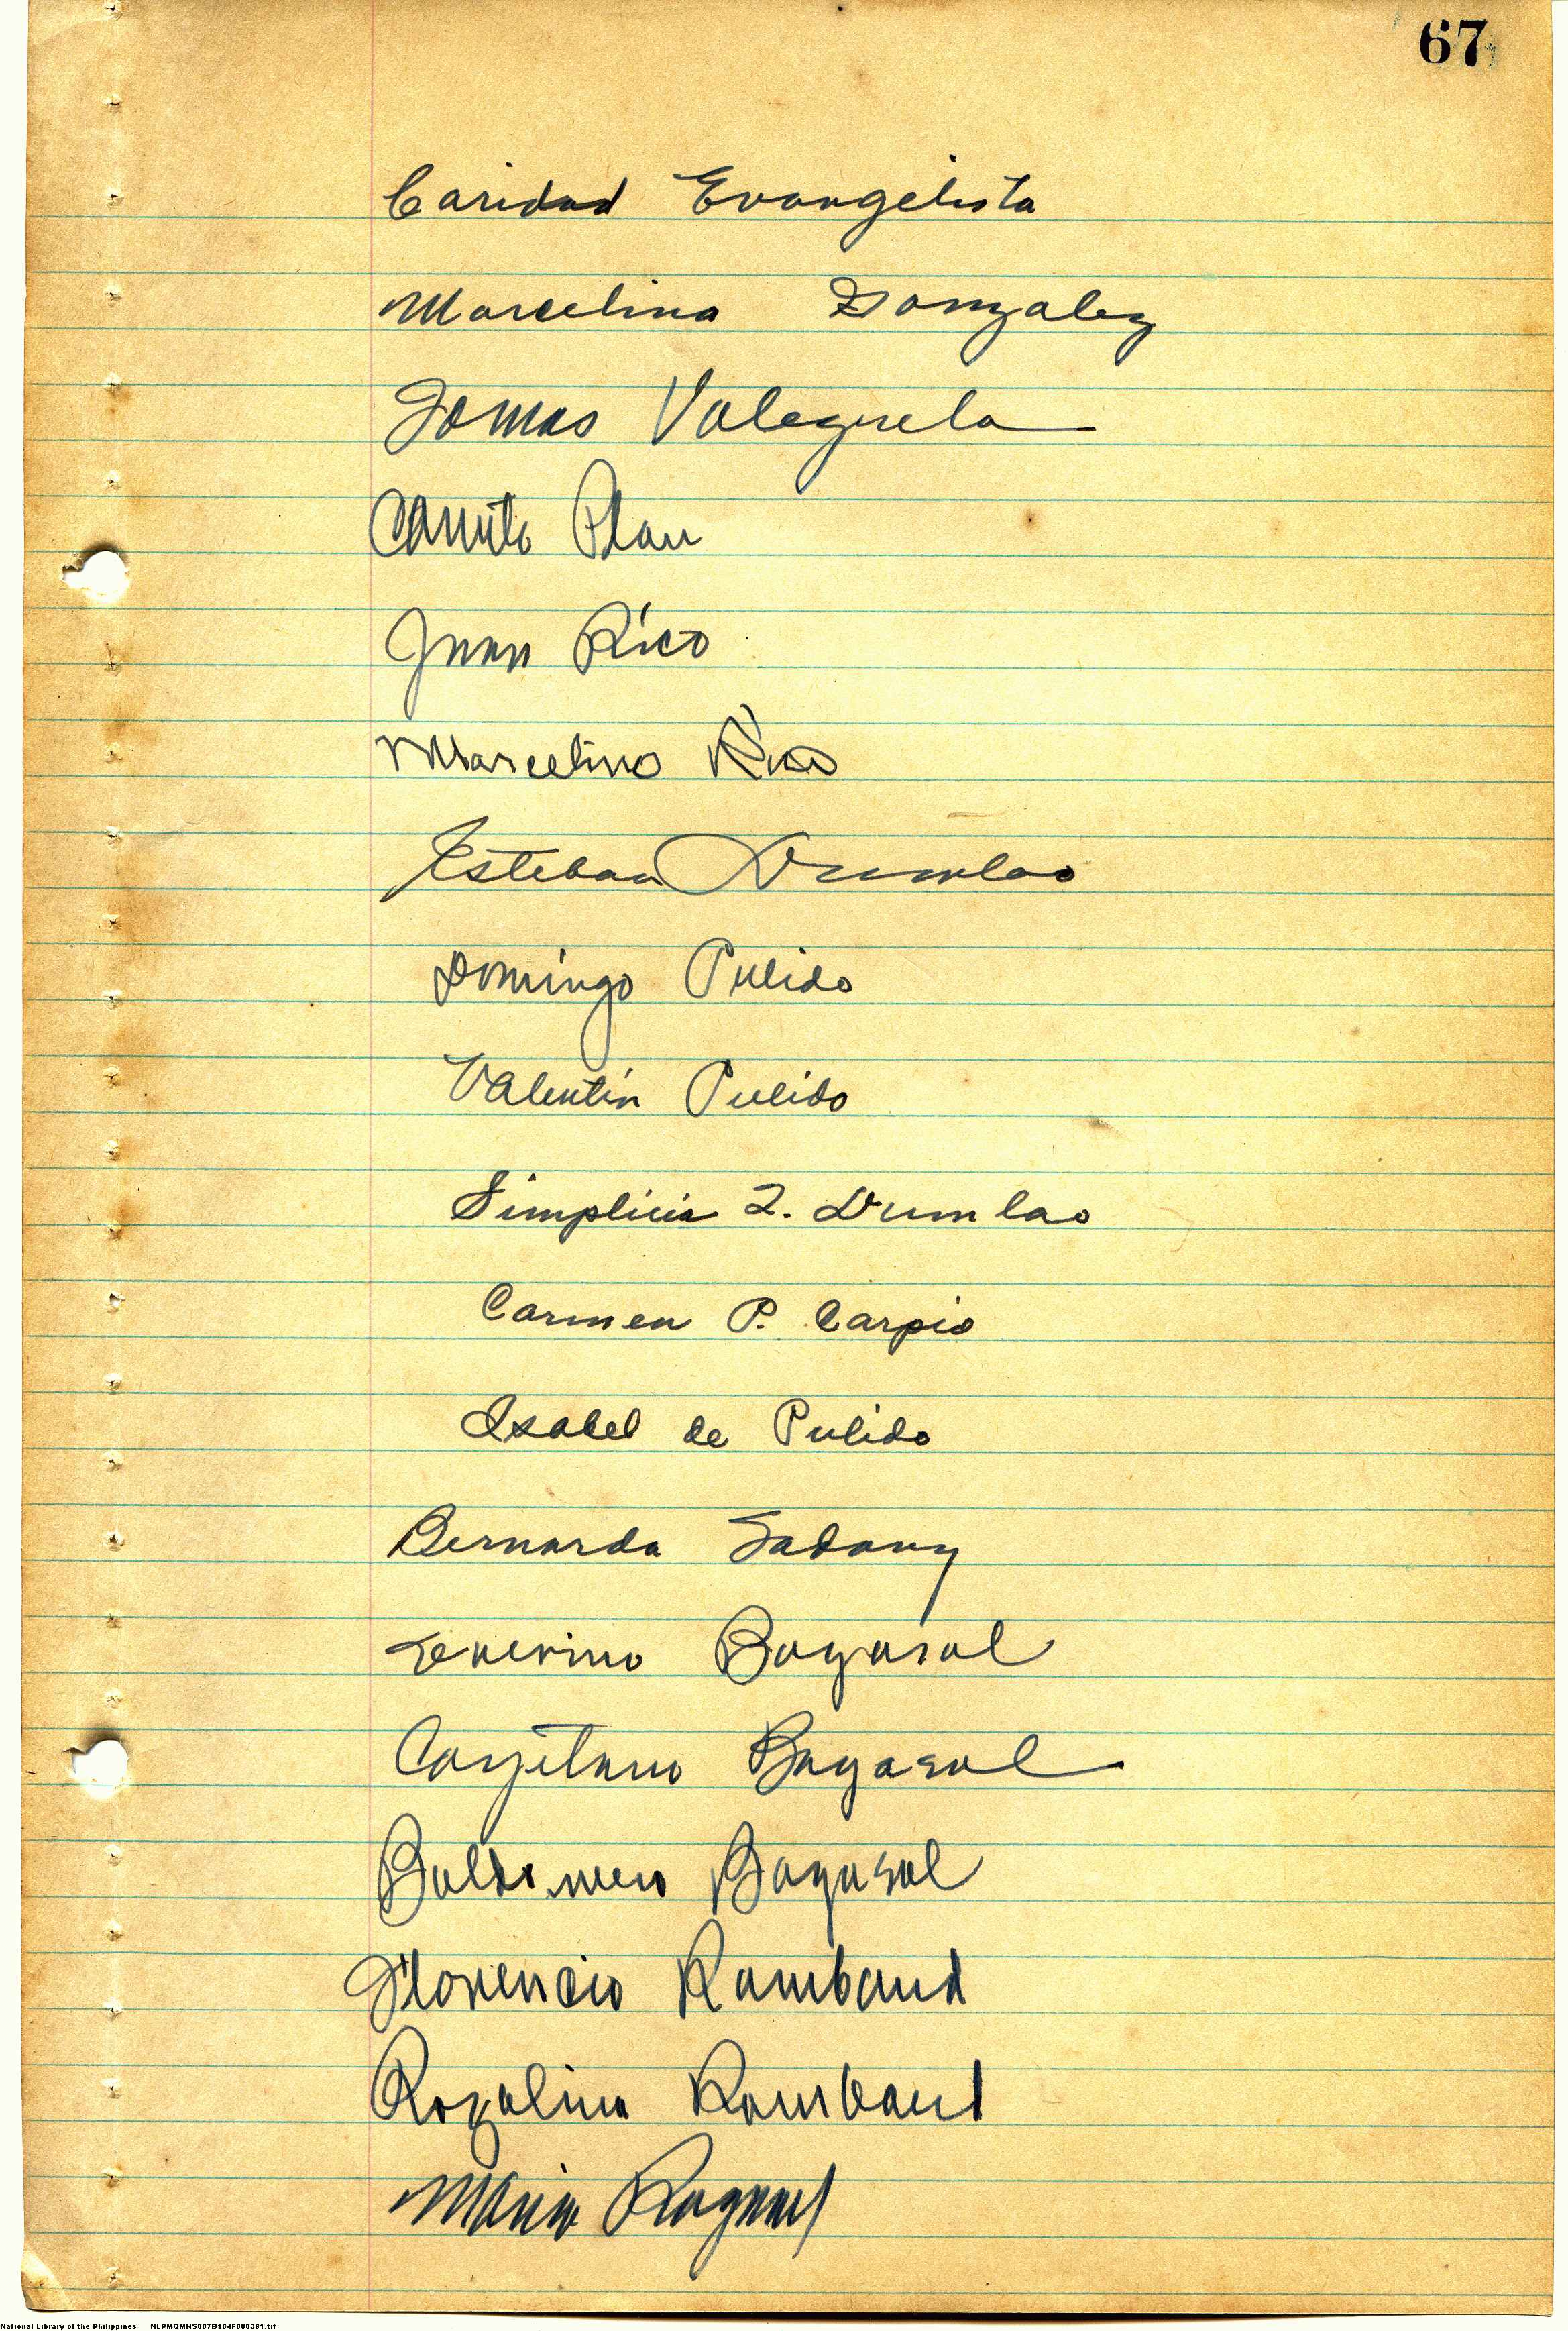 67
Caridad Evangelista
Marcelina Gonzalez
Tomas Valezuela
Camilo Plan
Juan Rico
Marcelino Rico
Esteban Dumlao
Domingo Pulido
Valentin Pulido
Simplicia Z. Dumlao
Carmen P. Carpio
Isabel de Pulido
Bernarda Sadany
Severino Bagasol
Cayitano Bagasol
Baldomero Bagasol
Florencio Rambaud
Rozalina Rambaud
Maria
National Library of the Philippines NLPMQMNS007B104F000381.tif